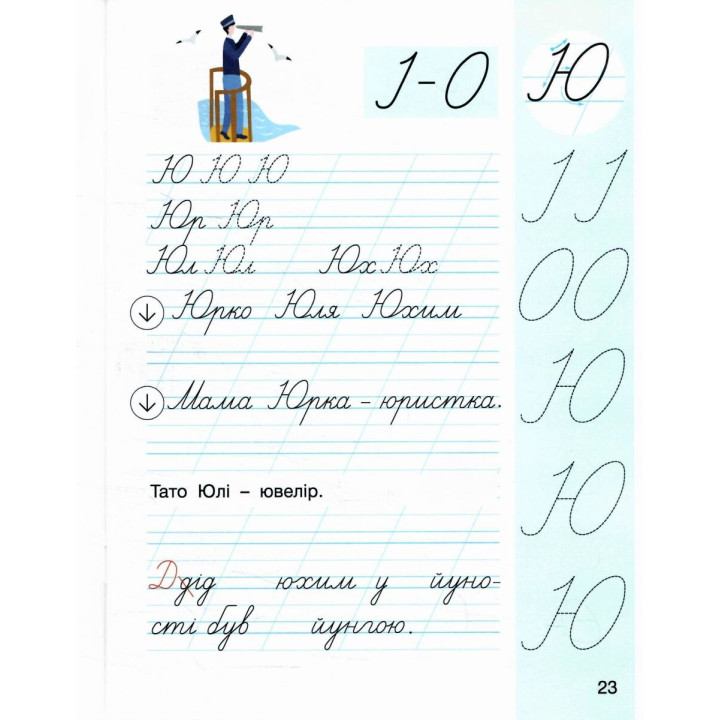 І-О Ю
Ю Ю Ю
Юр Юр
Юл Юл Юх Юх
Юрко Юля Юхим
Мама Юрка – юристка.
Тато Юлі – ювелір.
Ддід юхим у йуно-
сті був йунгою.
І І
О О
Ю
Ю
Ю
23